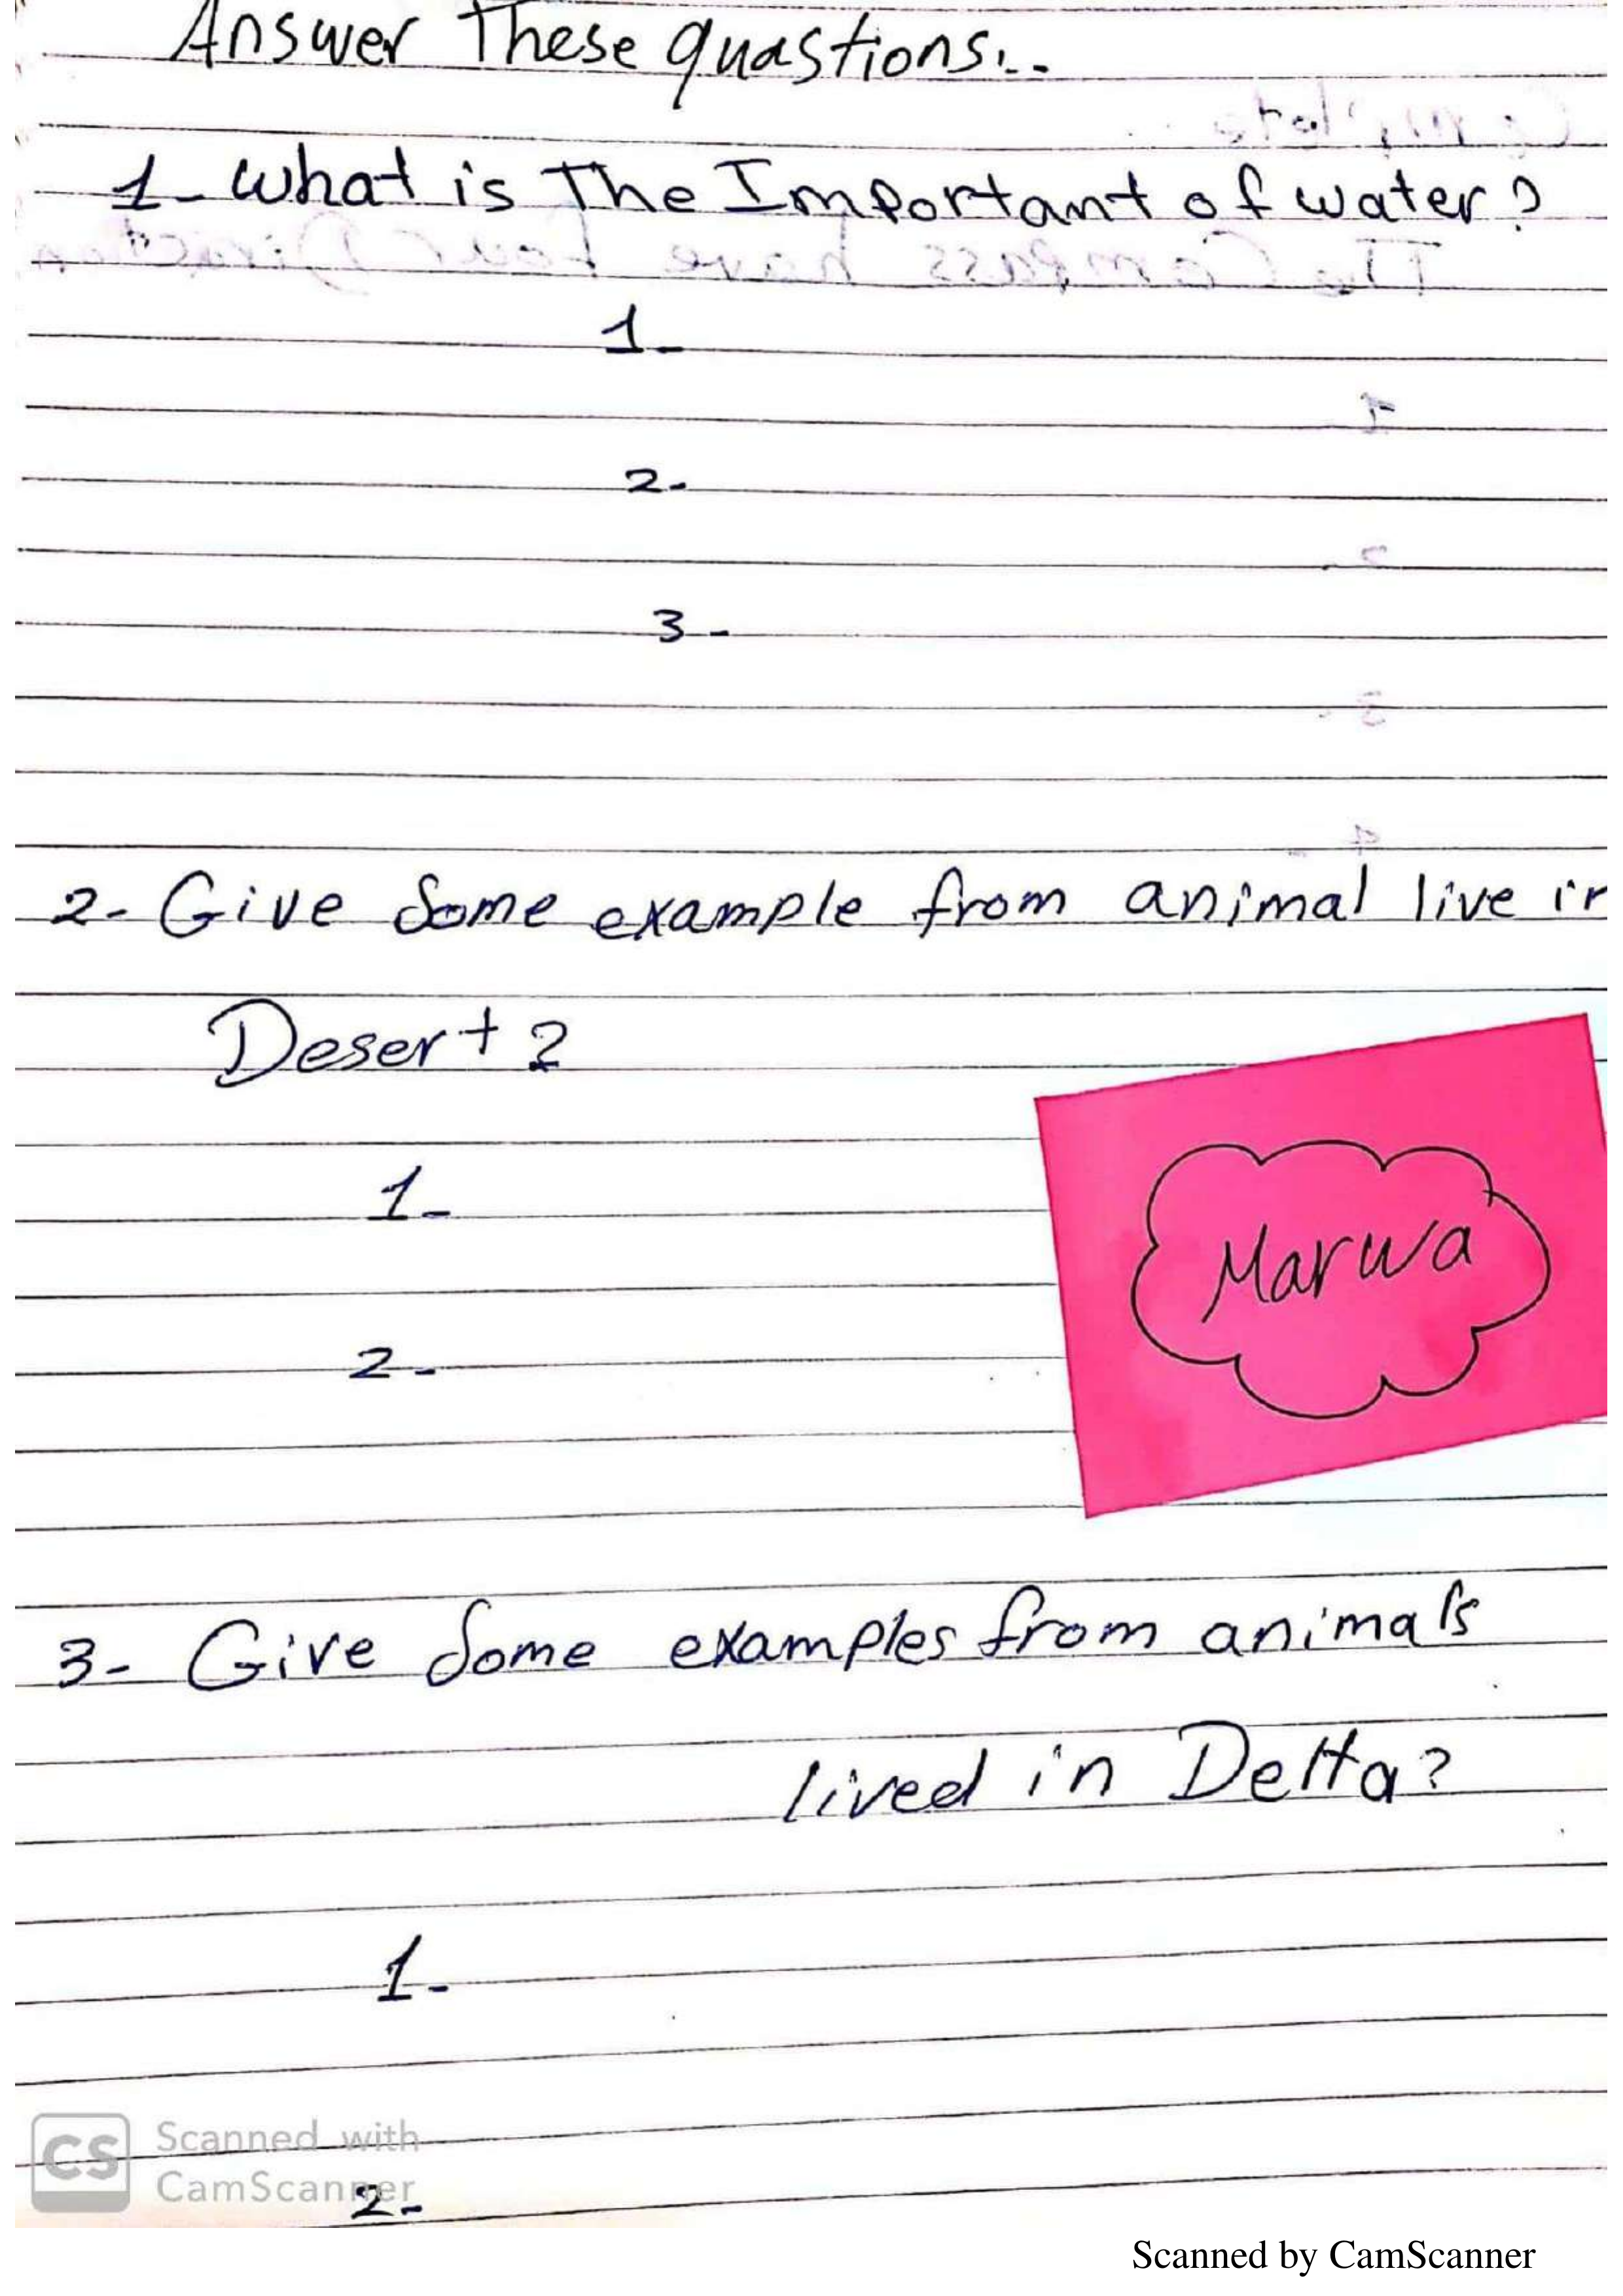 Answer These quastions...
1- What is The Important of water?
1-
2-
3-
2- Give Some example from animal live in
Desert?
1-
2-
Marwa
3- Give Some examples from animals
lived in Delta?
1-
2-
CS Scanned with
CamScanner
Scanned by CamScanner